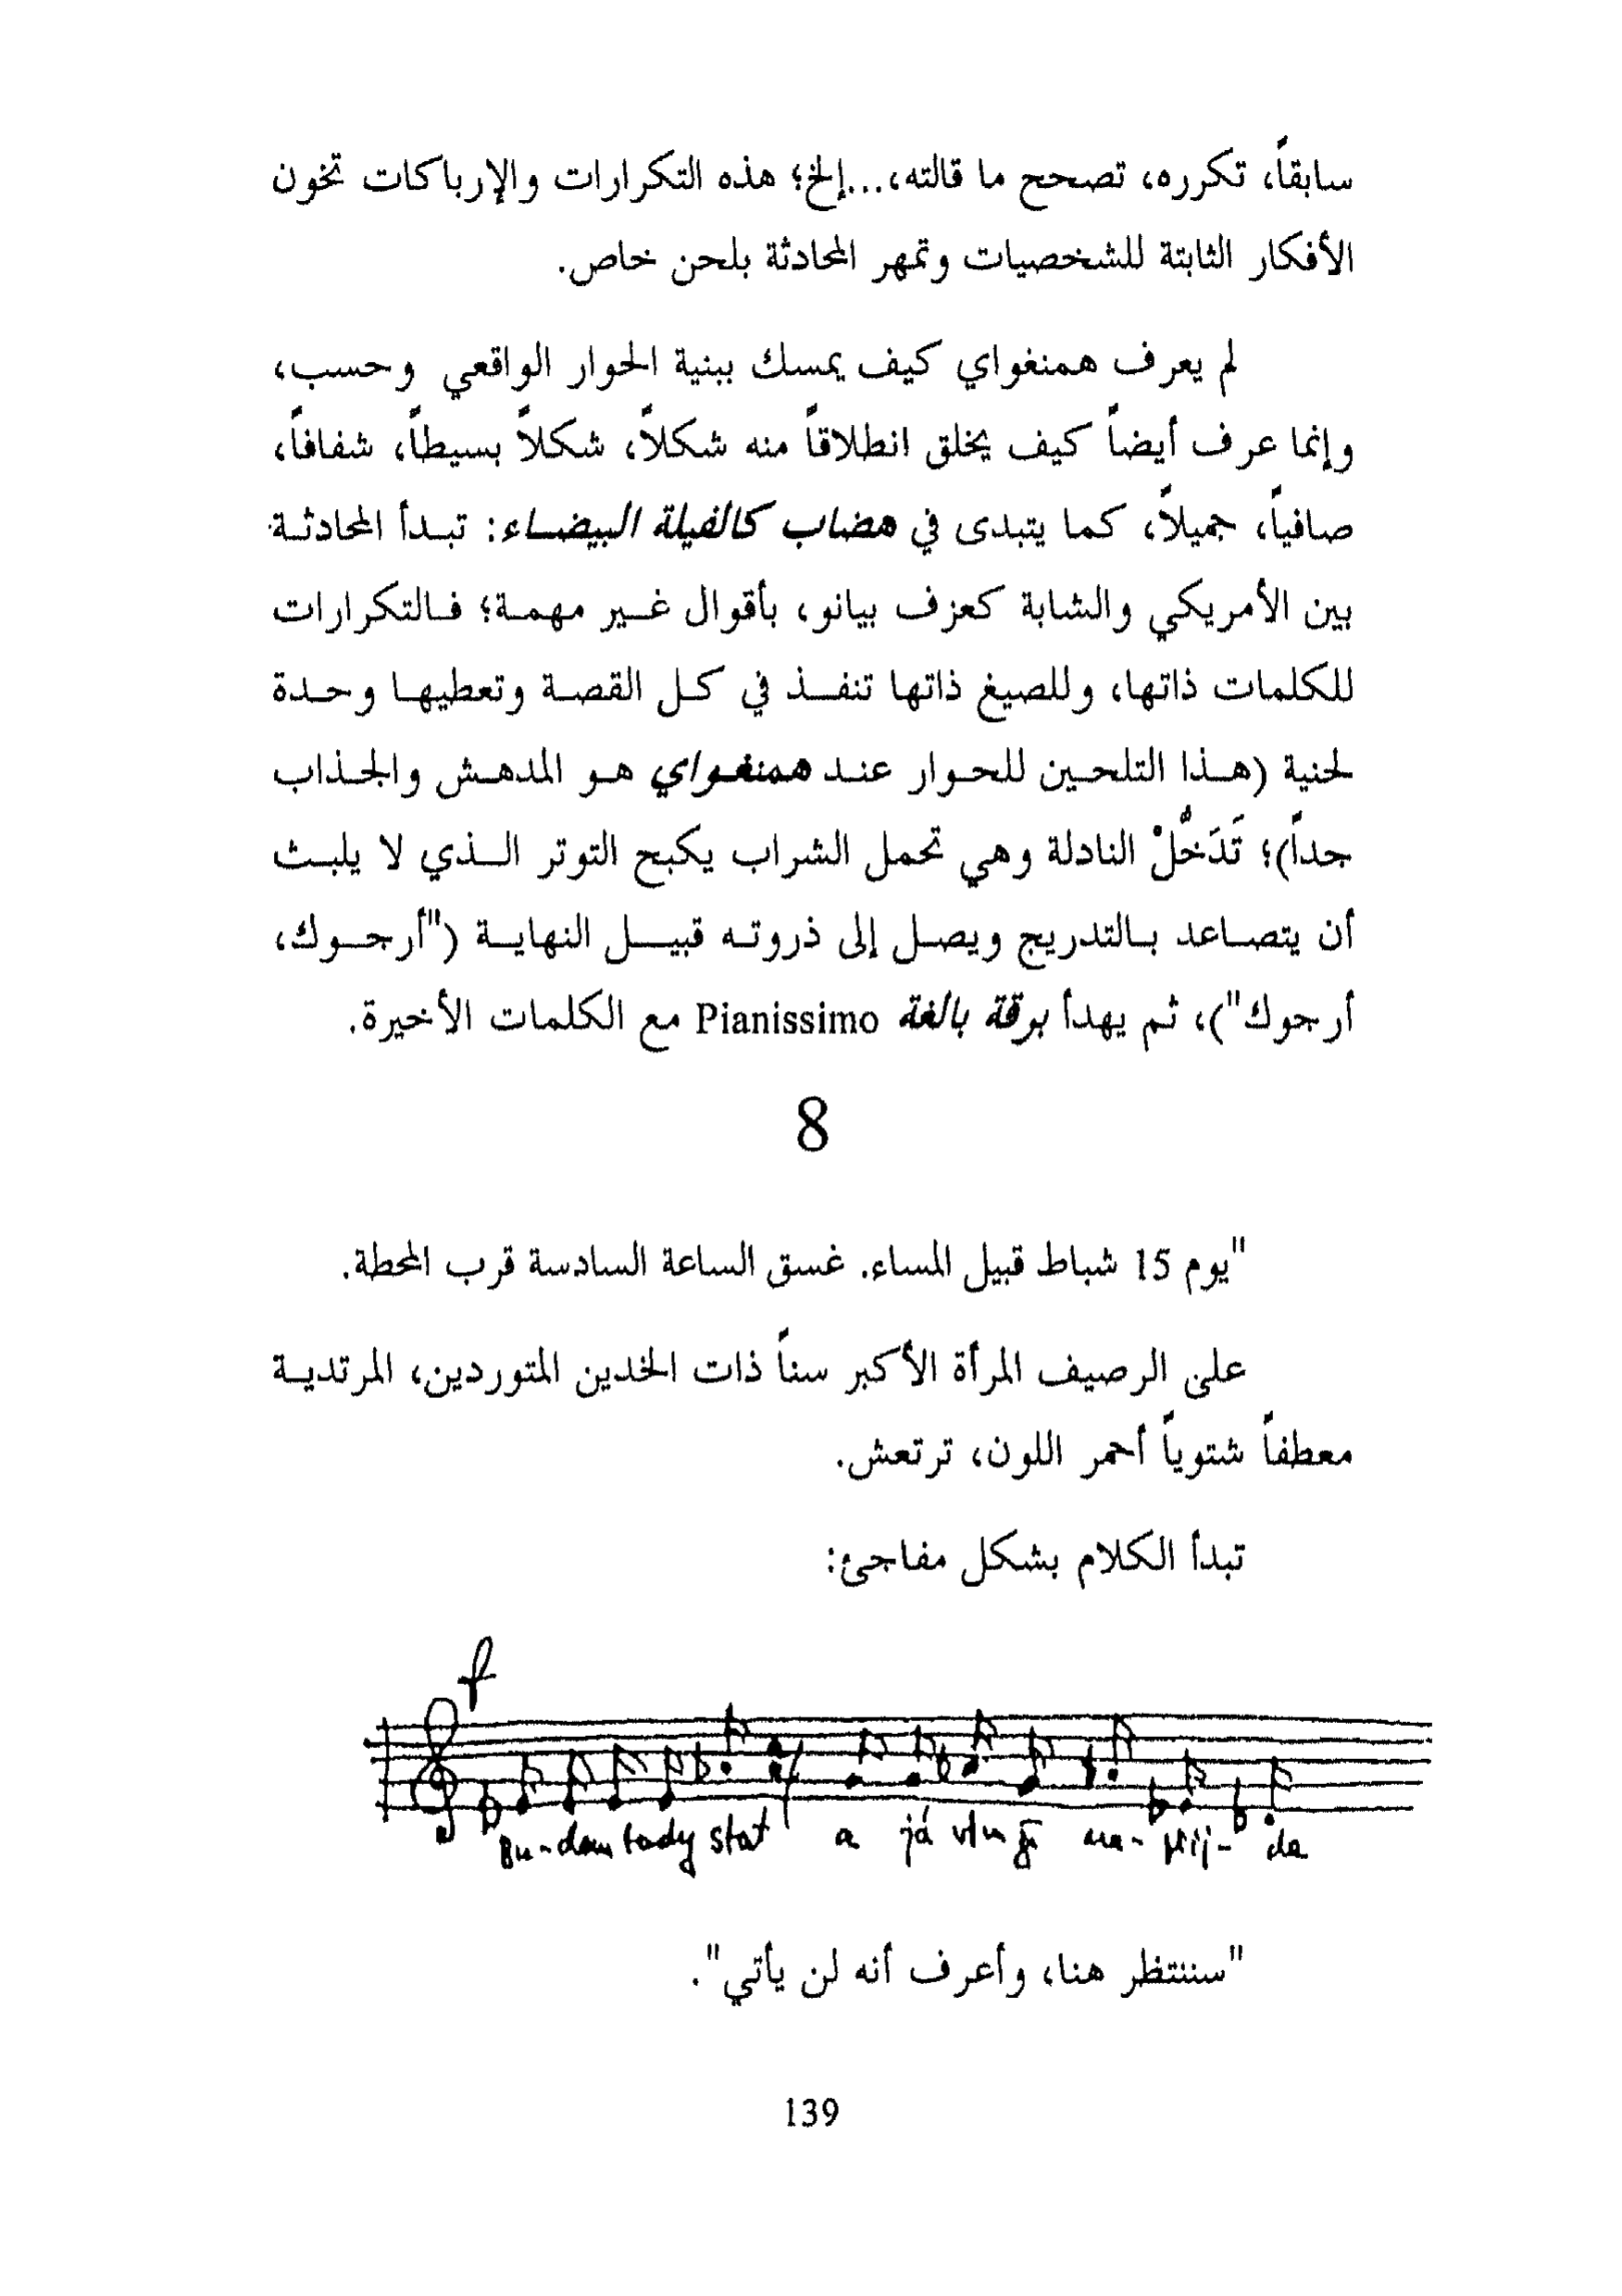 سابقاً، تكرره، تصحح ما قالته،...إلخ؛ هذه التكرارات والإرباكات تخون
الأفكار الثابتة للشخصيات وتمهر المحادثة بلحن خاص.
لم يعرف همنغواي كيف يمسك ببنية الحوار الواقعي وحسب،
وإنما عرف أيضاً كيف يخلق انطلاقاً منه شكلاً، شكلاً بسيطاً، شفافاً،
صافياً، جميلاً، كما يتبدى في هضاب كالفيلة البيضاء: تبدأ المحادثة
بين الأمريكي والشابة كعزف بيانو، بأقوال غير مهمة؛ فالتكرارات
للكلمات ذاتها، وللصيغ ذاتها تنفذ في كل القصة وتعطيها وحدة
لحنية (هذا التلحين للحوار عند همنغواي هو المدهش والجذاب
جداً)؛ تَدَخُّلْ النادلة وهي تحمل الشراب يكبح التوتر الذي لا يلبث
أن يتصاعد بالتدريج ويصل إلى ذروته قبيل النهاية ("أرجوك،
أرجوك")، ثم يهدأ برقة بالغة Pianissimo مع الكلمات الأخيرة.
8
"يوم 15 شباط قبيل المساء. غسق الساعة السادسة قرب المحطة.
على الرصيف المرأة الأكبر سناً ذات الخدين المتوردين، المرتدية
معطفاً شتوياً أحمر اللون، ترتعش.
تبدأ الكلام بشكل مفاجئ:
f
Bu-dem tady stat a já vím že
"سننتظر هنا، وأعرف أنه لن يأتي".
139